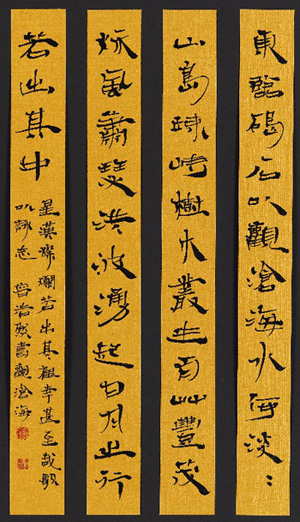 東臨碣石以觀滄海水何淡〻
山島竦峙樹木叢生百艸豐茂
秋風蕭瑟洪波湧起日月之行
若出其中
星漢燦爛若出其裏幸甚至哉歌
以詠志 書觀滄海